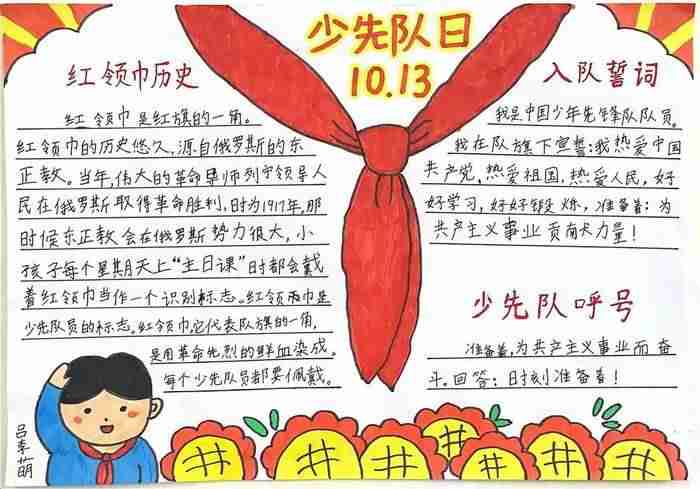 少先队日
10.13
红领巾历史
红领巾是红旗的一角。
红领巾的历史悠久,源自俄罗斯的东
正教。当年,伟大的革命导师列宁领导人
民在俄罗斯取得革命胜利,时为1917年,那
时候东正教会在俄罗斯势力很大,小
孩子每个星期天上“主日课”时都会戴
着红领巾当作一个识别标志。红领巾是
少先队员的标志。红领巾它代表队旗的一角,
是用革命先烈的鲜血染成。
每个少先队员都要佩戴。
入队誓词
我是中国少年先锋队队员。
我在队旗下宣誓:我热爱中国
共产党,热爱祖国,热爱人民,好
好学习,好好锻炼,准备着:为
共产主义事业贡献力量!
少先队呼号
准备着,为共产主义事业而奋
斗.回答:时刻准备着!
吕李萌